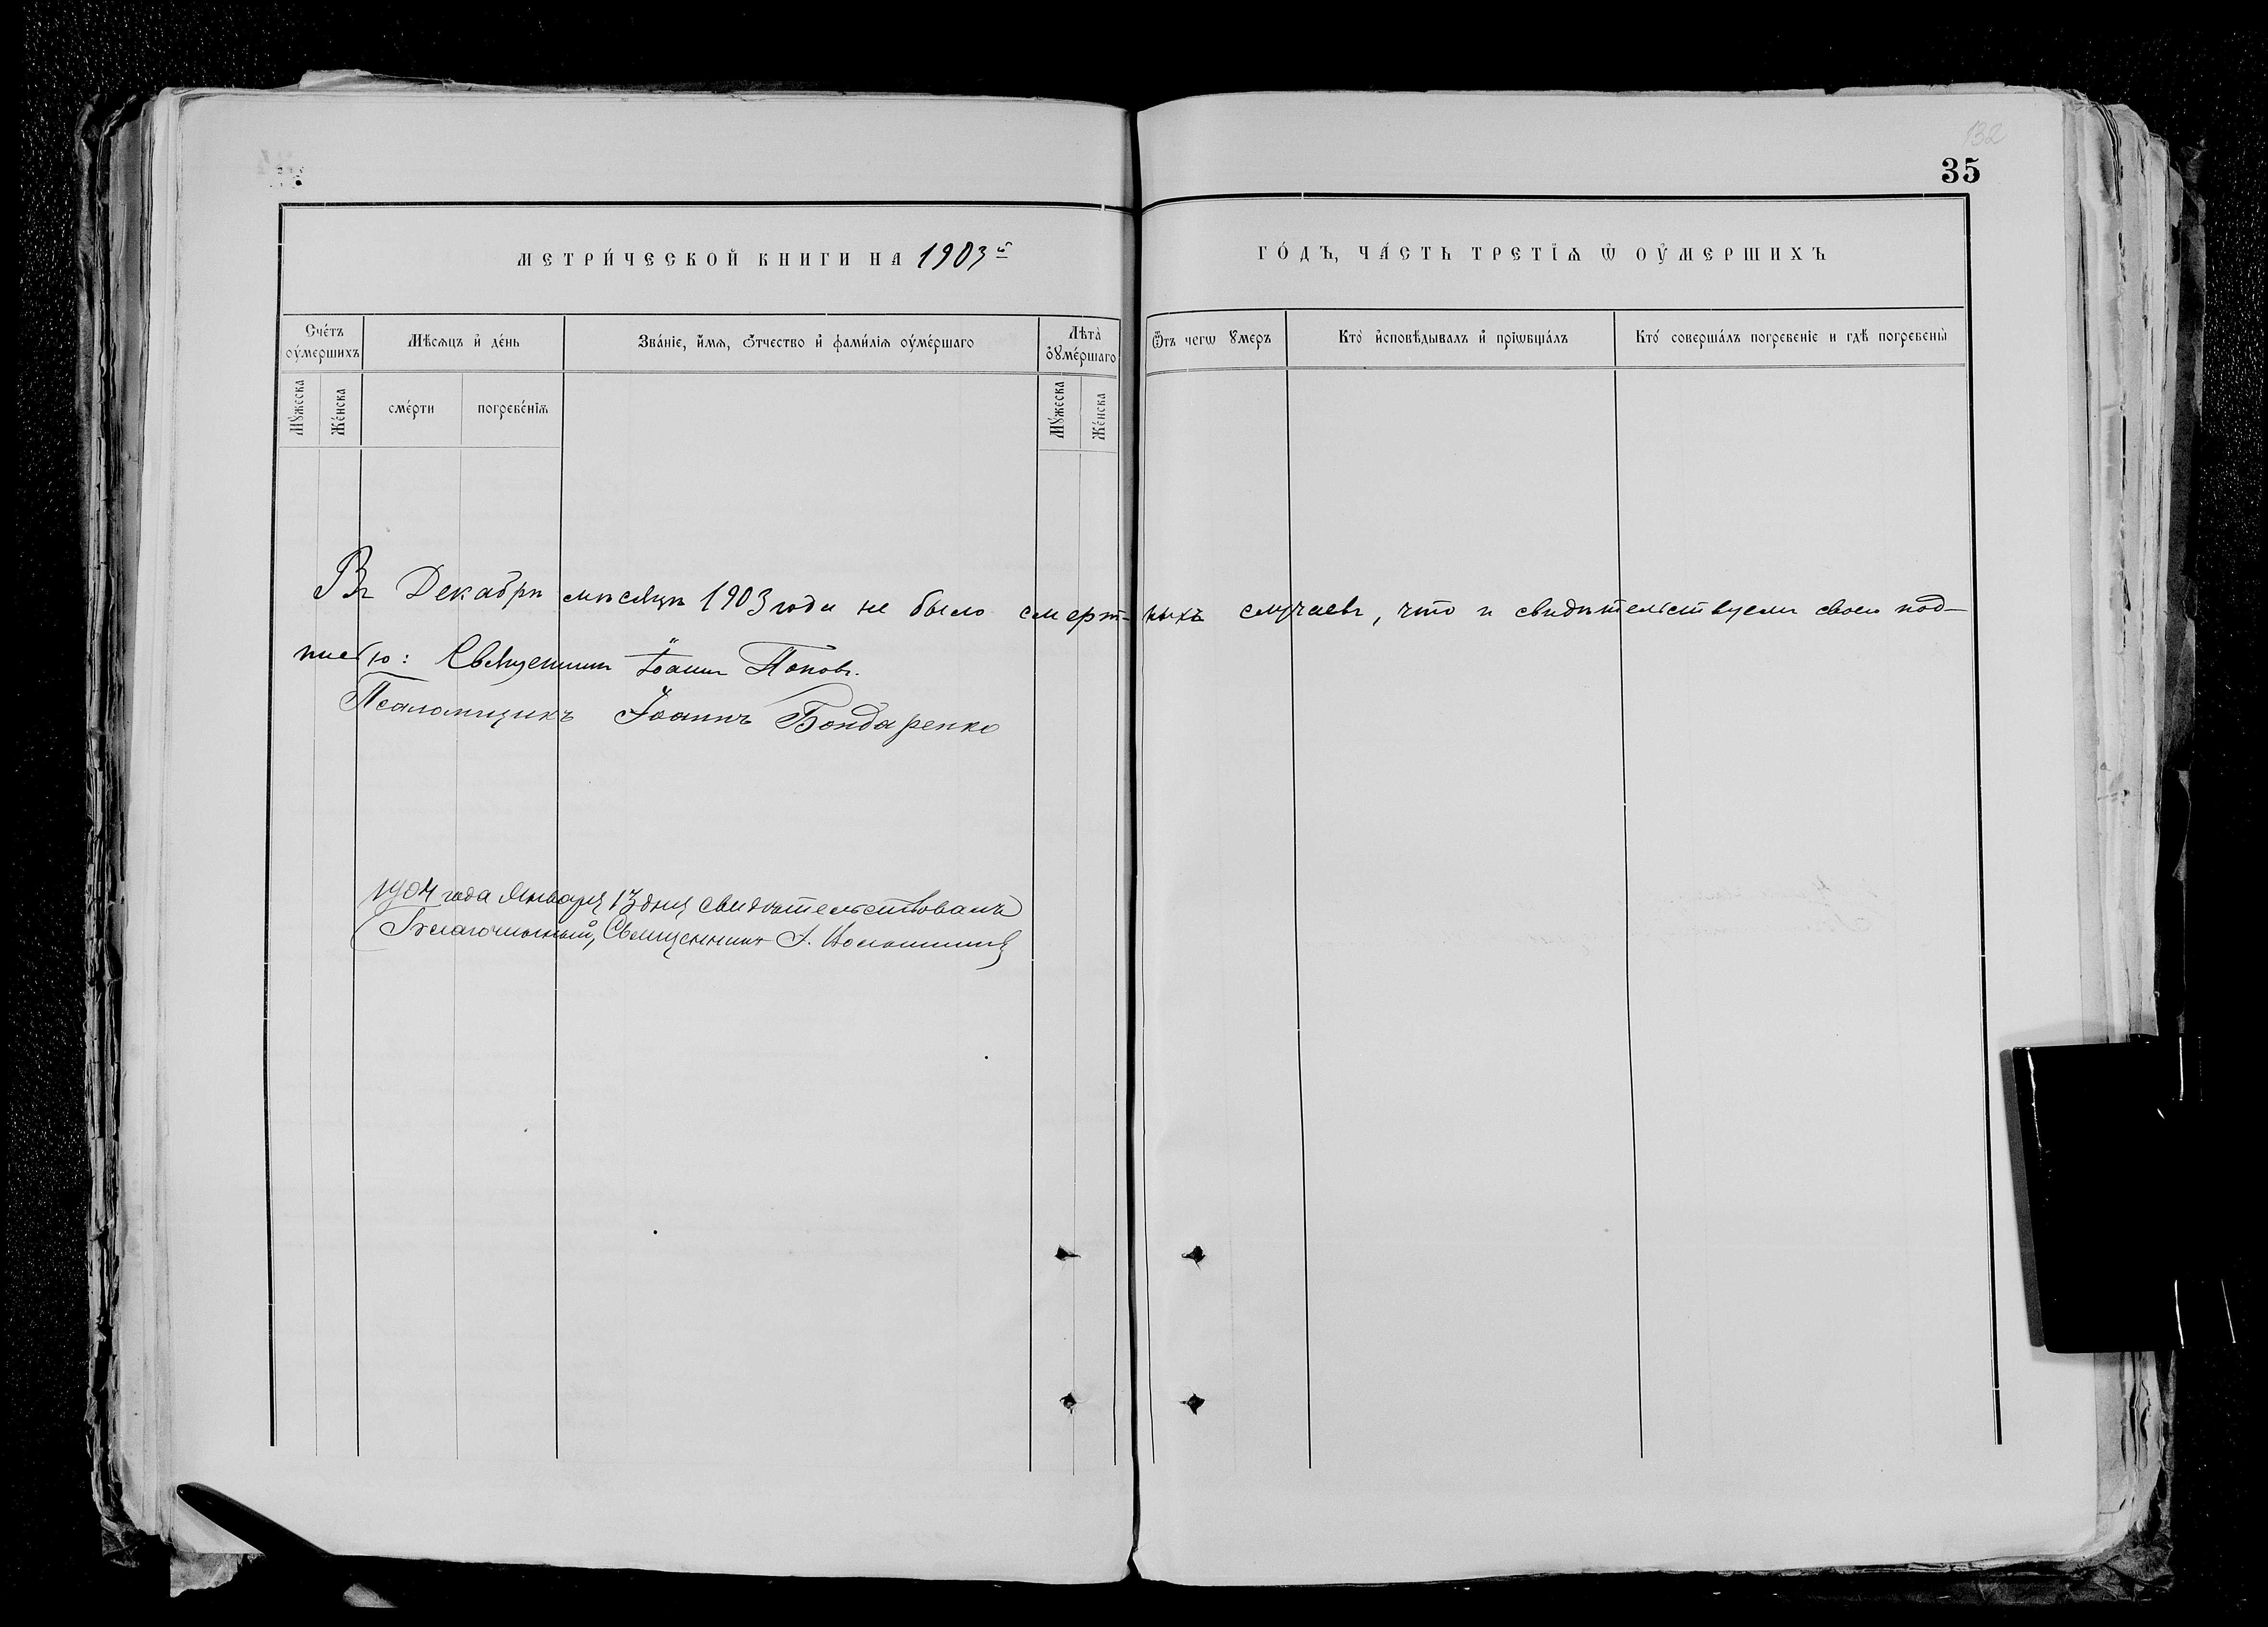 132
35
МЕТРИ́ЧЕСКОЙ КНИГИ НА 1903й
ГО́ДЪ, ЧА́СТЬ ТРЕТІѦ Ѡ҆ ОУ҆МЕРШИХЪ
Сче́тъ оу҆ме́ршихъ
Мѣ́сѧцъ и҆ де́нь
Зва́нїе, и҆́мѧ, ѻ҆́тчество и҆ фами́лїѧ оу҆ме́ршаго
Лѣта̀ оу҆ме́ршаго
Ѿ чегѡ̀ ᲂумеръ
Кто̀ и҆сповѣ́дывалъ и҆ прїѡбща́лъ
Кто́ соверша́лъ погребенїе и гдѣ̀ погребены̀
Мꙋ́жеска
Же́нска
сме́рти
погребе́нїѧ
Мꙋ́жеска
Же́нска
Въ Декабрѣ мѣсяцѣ 1903 года не было смерт-ныхъ случаевъ, что и свидѣтельствуемъ своею под-
писью: Священникъ Іоаннъ Поповъ.
Псаломщикъ Іоаннъ Бондаренко
1904 года Января 13 дня свидѣтельствовалъ
Благочинный, Священникъ